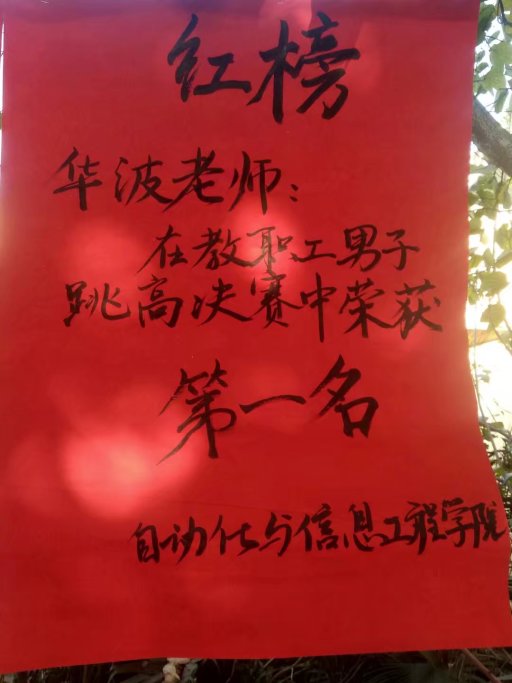 红榜
华波老师：
在教职工男子
跳高决赛中荣获
第一名
自动化与信息工程学院